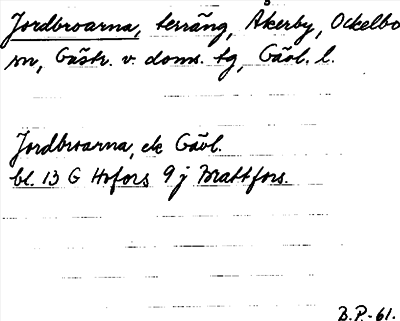 Jordbroarna, terräng, Åkerby, Ockelbo
sn, Gästr. v. doms. tg, Gävl. l.
Jordbroarna, ek Gävl.
bl. 13 G Hofors 9 j Brattfors.
B.P.-61.